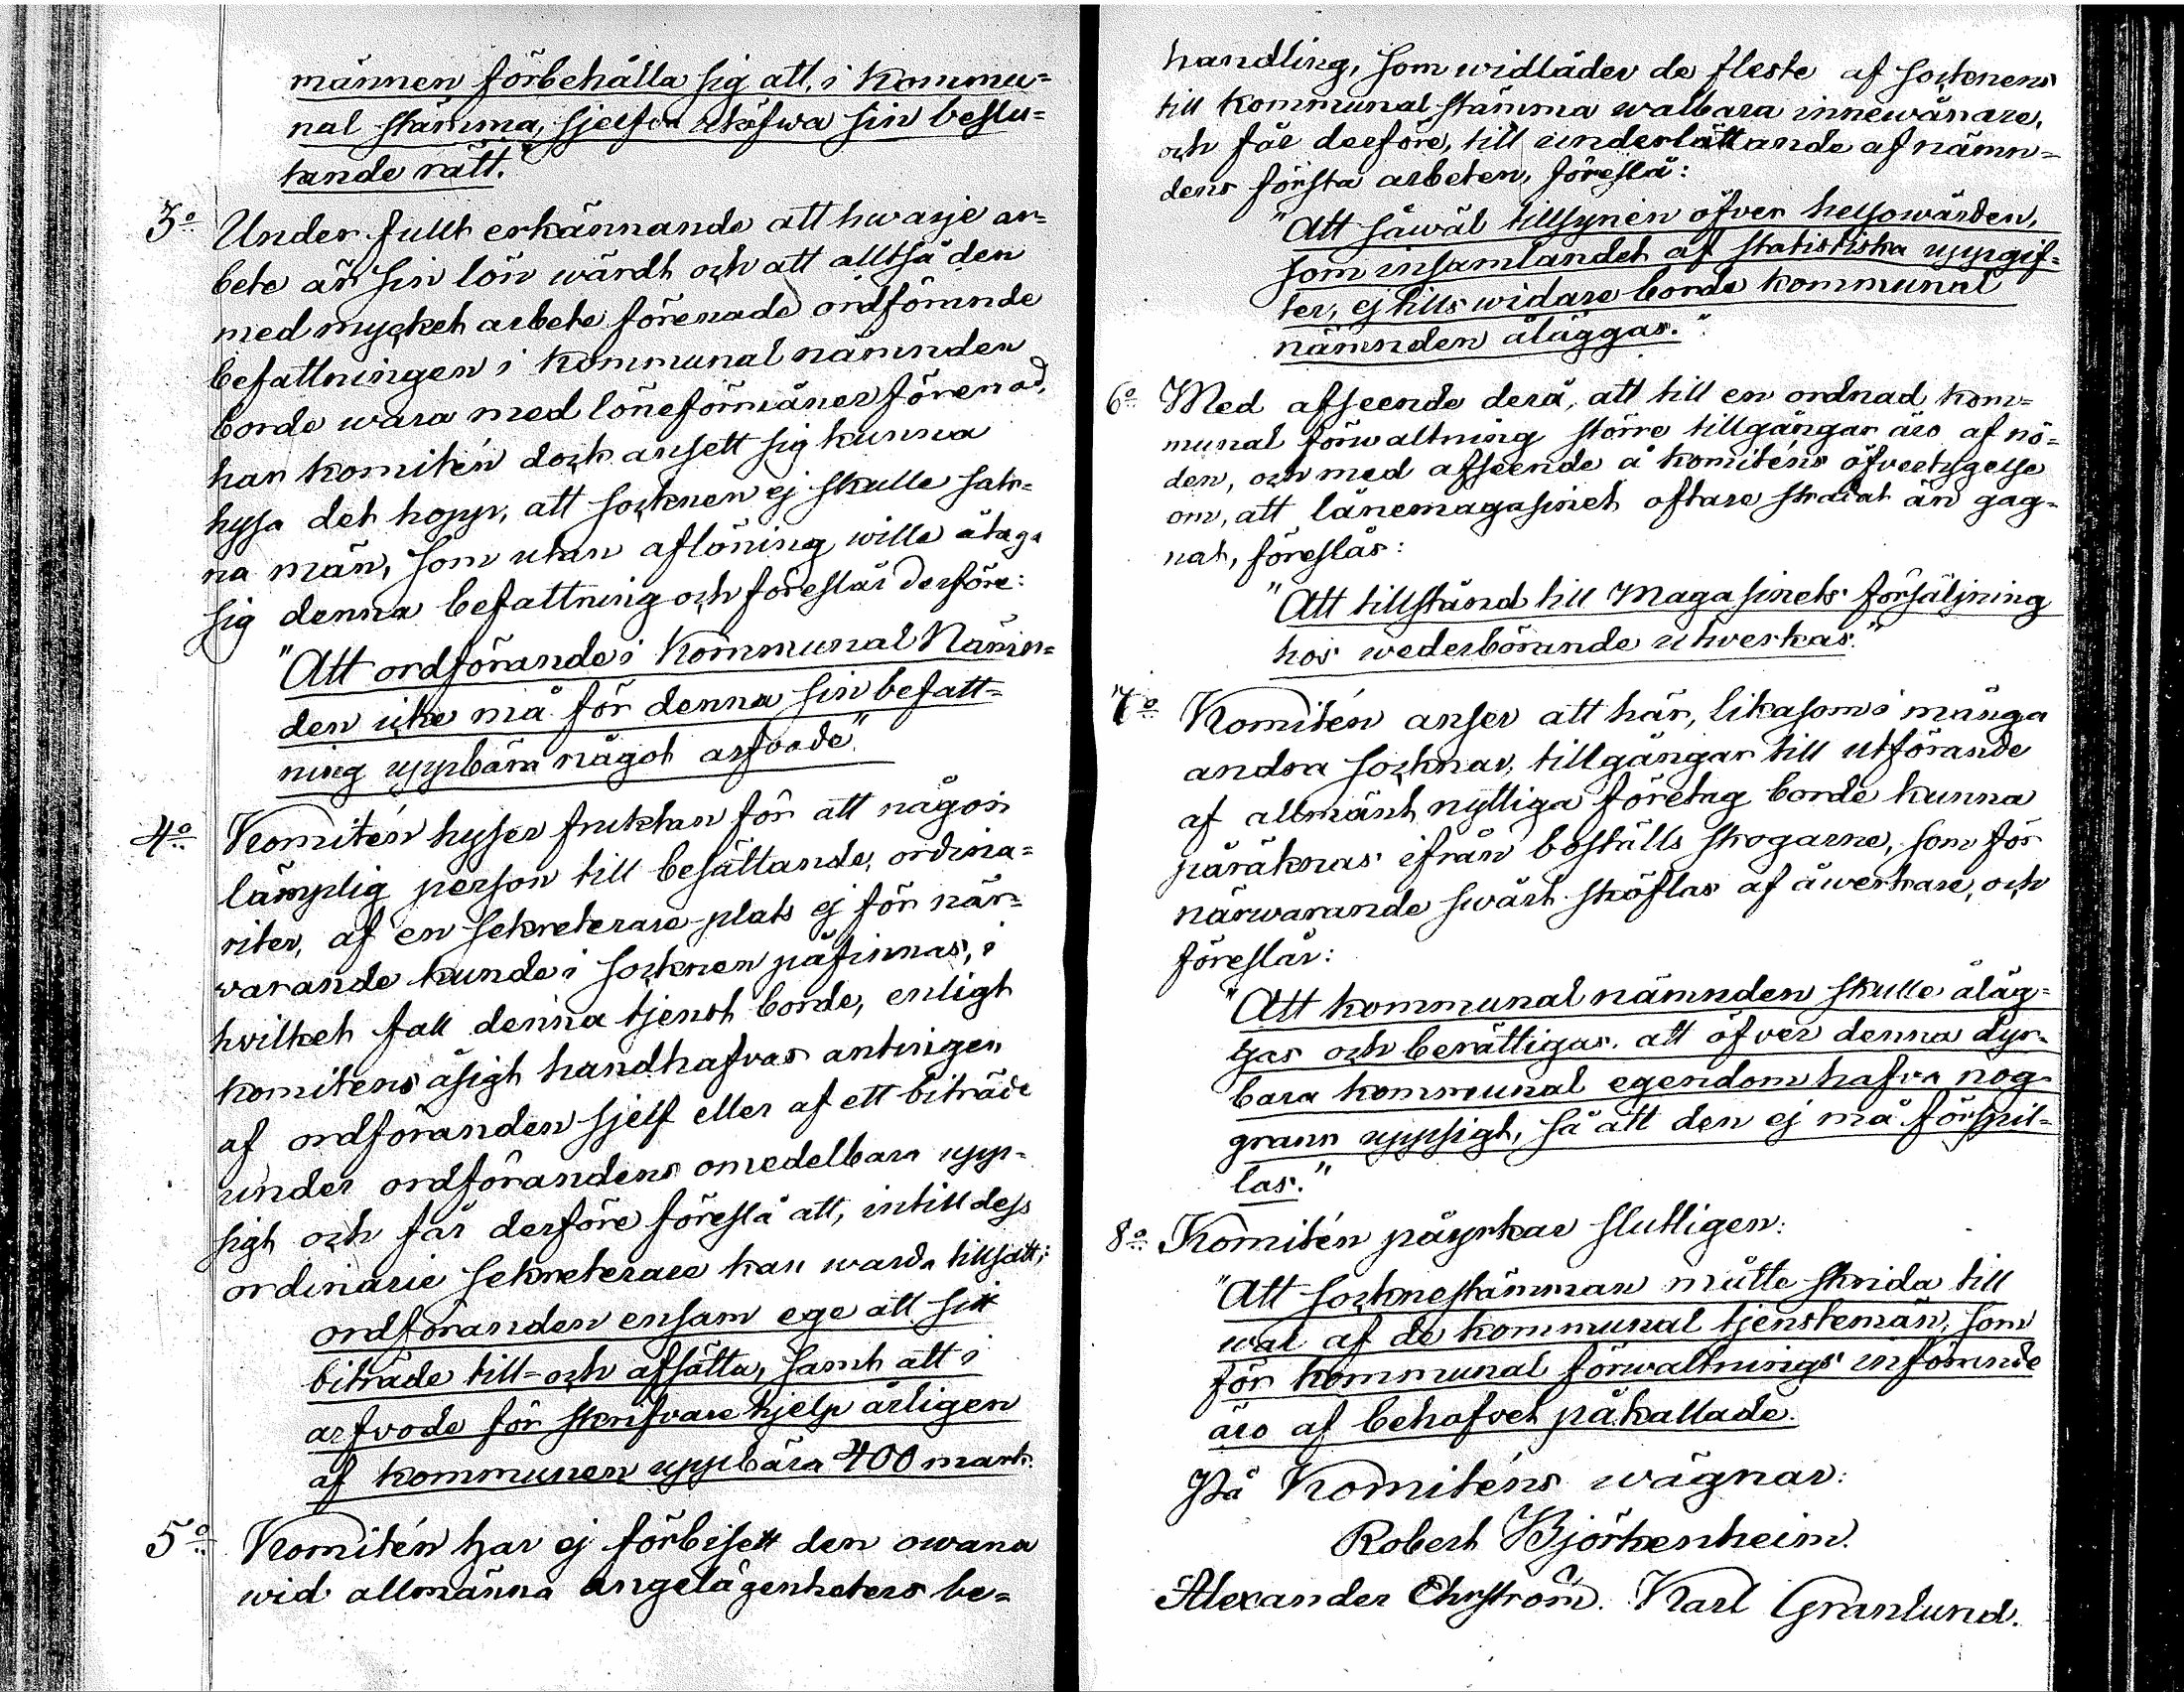 männen förbehålla sig att, i kommu=
nal stämma, sjelfva utöfwa sin beslu=
tande rätt."
3:o Under fullt erkännande att hwarje ar=
bete är sin lön wärdt och att alltså den
med mycket arbete förenade ordförande
befattningen i kommunal nämnden
borde wara med löneförmåner förenad,
har komitén dock ansett sig kunna
hysa det hopp, att socknen ej skulle sak=
na män, som utan aflöning wille åtaga
sig denna befattning och föreslår derföre:
"Att ordförande i Kommunal Nämn=
den icke må för denna sin befatt=
ning uppbära något arfvode".
4:o Komitén hyser fruktan för att någon
lämplig person till besättande, ordina=
riter, af en sekreterare-plats ej för när=
varande kunde i socknen påfinnas, i
hvilket fall denna tjenst borde, enligt
komitens åsigt handhafvas antingen
af ordföranden sjelf eller af ett biträde
under ordförandens omedelbara upp=
sigt och får derföre föreslå att, intill dess
ordinarie sekreterare kan warda tillsatt;
ordföranden ensam ege att sitt
biträde till= och afsätta, samt att i
arfvode för skrifvare hjelp årligen
af kommunen uppbära 400 mark.
5:o Komitén har ej förbisett den owana
wid allmänna angelägenheters be=
handling, som widlåder de fleste af socknens
till kommunal-stämma walbara innewånare,
och får derföre, till underlättande af nämn=
dens första arbeten, föreslå:
"Att såwäl tillsynen öfver helsowården,
som insamlandet af statistiska uppgif=
ter, ej tills widare borde kommunal
nämnden åläggas."
6:o Med afseende derå, att till en ordnad kom=
munal förwaltning större tillgångar äro af nö=
den, och med afseende å komiténs öfvertygelse
om, att lånemagasinet oftare skadat än gag=
nat, föreslås:
"Att tillstånd till Magasinets försäljning
hos wederbörande utverkas."
7:o Komitén anser att här, likasom i många
andra socknar, tillgångar till utförande
af allmänt nyttiga företag borde kunna
påräknas ifrån boställs skogarne, som för
närwarande swårt sköflas af åwerkare, och
föreslår:
"Att kommunal nämnden skulle åläg=
gas och berättigas, att öfver denna dyr=
bara kommunal egendom hafva nog=
grann uppsigt, så att den ej må förspil=
las."
8:o Komitén påyrkar slutligen:
"Att socknestämman måtte skrida till
wal af de kommunal tjenstemän, som
för kommunal förwaltnings införande
äro af behofvet påkallade.
På Komiténs wägnar:
Robert Björkenheim.
Alexander Ehrström. Karl Granlund.